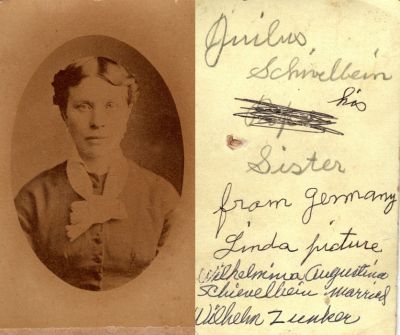 Juilus
Schivelbein
his
Sister
from Germany
Linda picture
Wilhelmina Augustina
Schievelbein married
Wilhelm Zunker